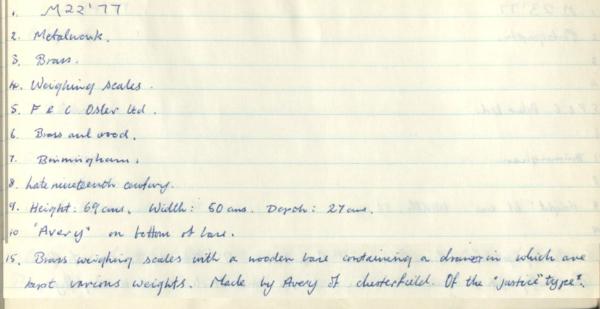 1. M22'77
2. Metalwork.
3. Brass.
4. Weighing scales.
5. F & C Osler Ltd.
6. Brass and wood.
7. Birmingham.
8. Late nineteenth century.
9. Height: 69 cms. Width: 50 cms. Depth: 27 cms.
10 "Avery" on bottom of base.
15. Brass weighing scales with a wooden base containing a drawer in which are
kept various weights. Made by Avery of Chesterfield. Of the "justice" type".